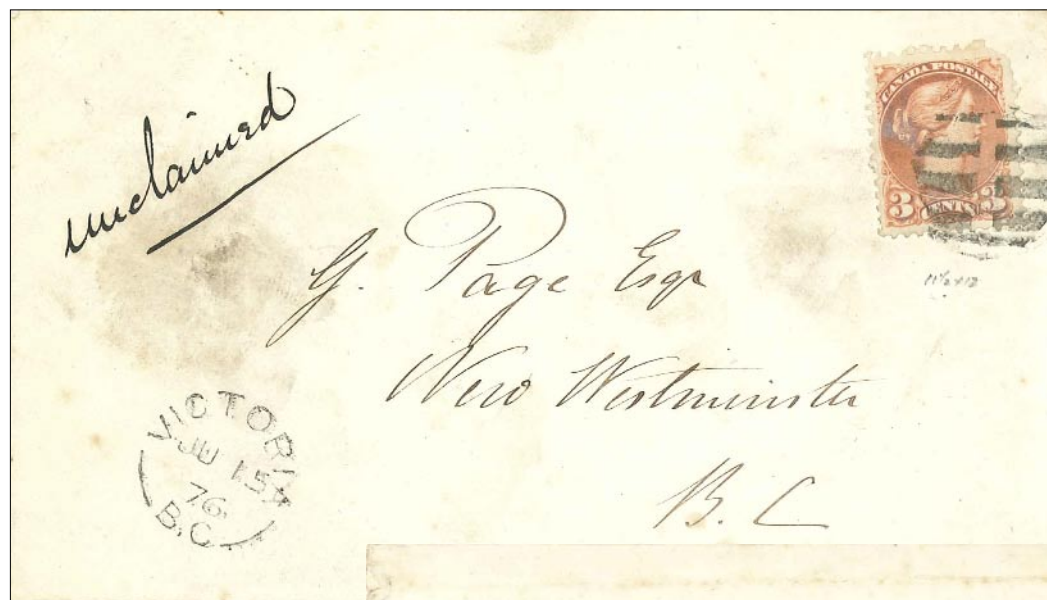 unclaimed
CANADA POSTAGE
3 CENTS 3
11½x12
G. Page Esqr
New Westminster
B. C
VICTORIA
JU 15
76
B.C.